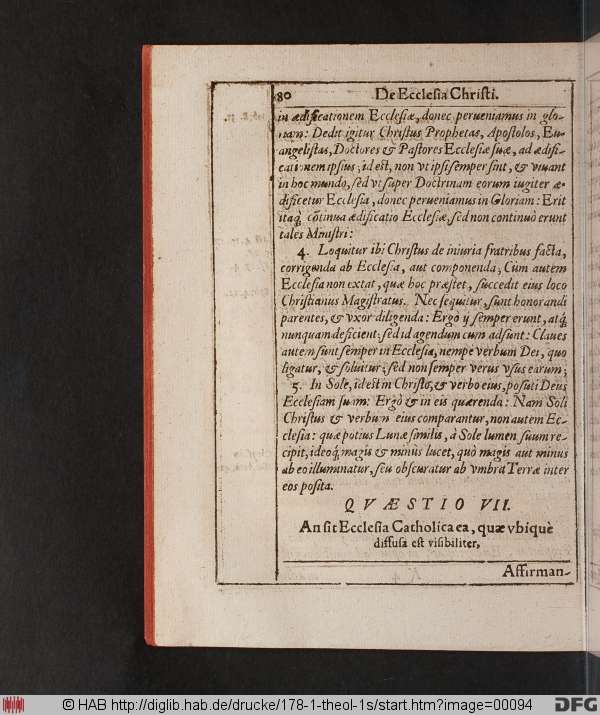 80 De Ecclesia Christi.
in ædificationem Ecclesiæ, donec perueniamus in glo-
riam: Dedit igitur Christus Prophetas, Apostolos, Eu-
angelistas, Doctores & Pastores Ecclesiæ suæ, ad ædifi-
cationem ipsius; id est, non vt ipsi semper sint, & viuant
in hoc mundo, sed vt super Doctrinam eorum iugiter æ-
dificetur Ecclesia, donec perueniamus in Gloriam: Erit
itaq; cōtinua ædificatio Ecclesiæ, sed non continuò erunt
tales Ministri:
4. Loquitur ibi Christus de iniuria fratribus facta,
corrigenda ab Ecclesia, aut componenda; Cùm autem
Ecclesia non extat, quæ hoc præstet, succedit eius loco
Christianus Magistratus. Nec sequitur, sunt honorandi
parentes, & vxor diligenda: Ergò ij semper erunt, atq;
nunquam deficient; sed id agendum cum adsunt: Claues
autem sunt semper in Ecclesia, nempe verbum Dei, quo
ligatur, & soluitur; sed non semper verus vsus earum;
5. In Sole, id est in Christo, & verbo eius, posuit Deus
Ecclesiam suam: Ergò & in eis quærenda: Nam Soli
Christus & verbum eius comparantur, non autem Ec-
clesia: quæ potius Lunæ similis, à Sole lumen suum re-
cipit, ideoq; magis & minùs lucet, quò magis aut minus
ab eo illuminatur, seu obscuratur ab vmbra Terræ inter
eos posita.
QVÆSTIO VII.
An sit Ecclesia Catholica ea, quæ vbiquè
diffusa est visibiliter,
Affirman-
© HAB http://diglib.hab.de/drucke/178-1-theol-1s/start.htm?image=00094
DFG